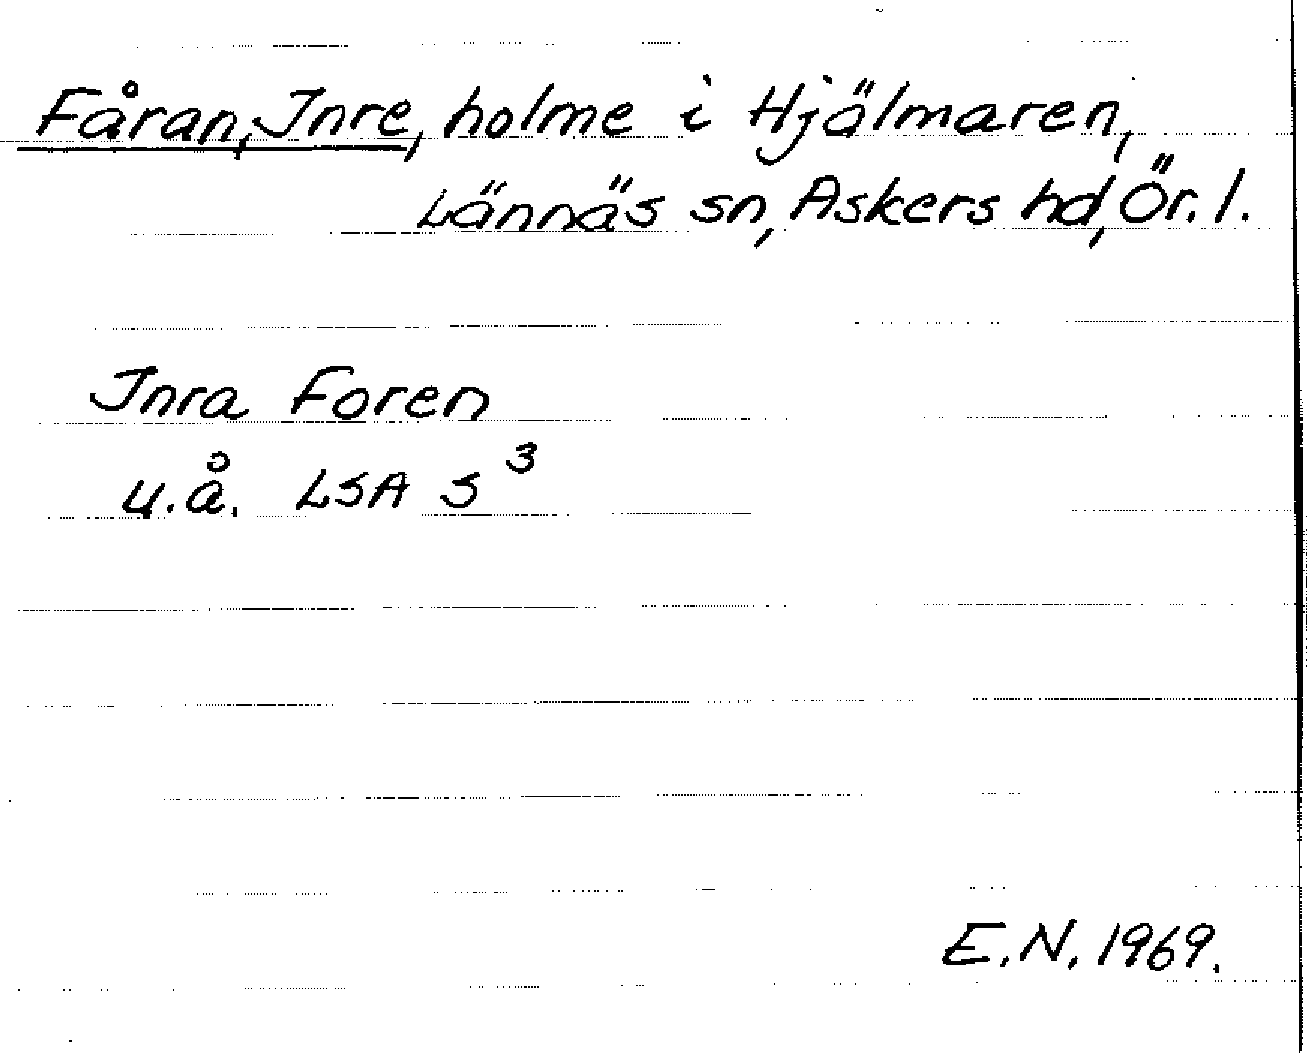 Fåran, Inre, holme i Hjälmaren,
Lännäs sn, Askers hd, Ör. l.
Inra Foren
u.å. LSA S³
E.N. 1969.